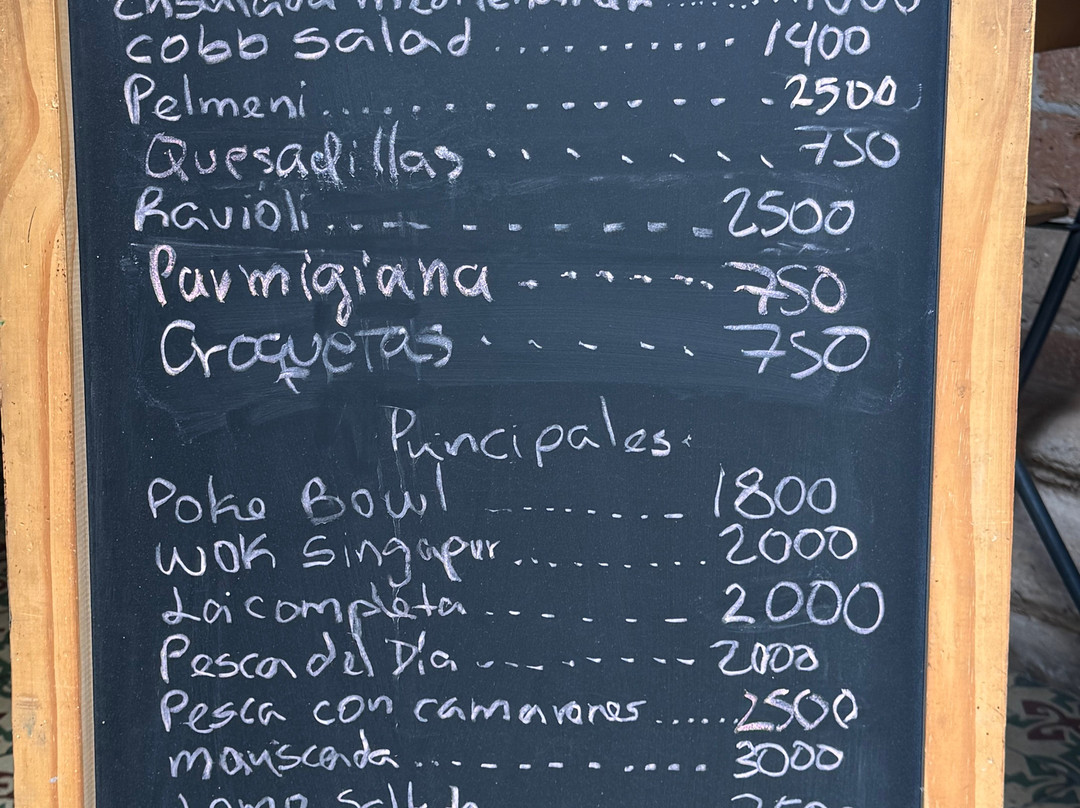 Ensalada mediterranea ........ 1000
cobb salad .......... 1400
Pelmeni .............. 2500
Quesadillas ....... 750
Ravioli ......... 2500
Parmigiana ...... 750
Croquetas ..... 750
Principales.
Poke Bowl ........ 1800
Wok Singapur ......... 2000
La completa ...... 2000
Pesca del Día ....... 2000
Pesca con camarones ...... 2500
mariscada .......... 3000
Lomo